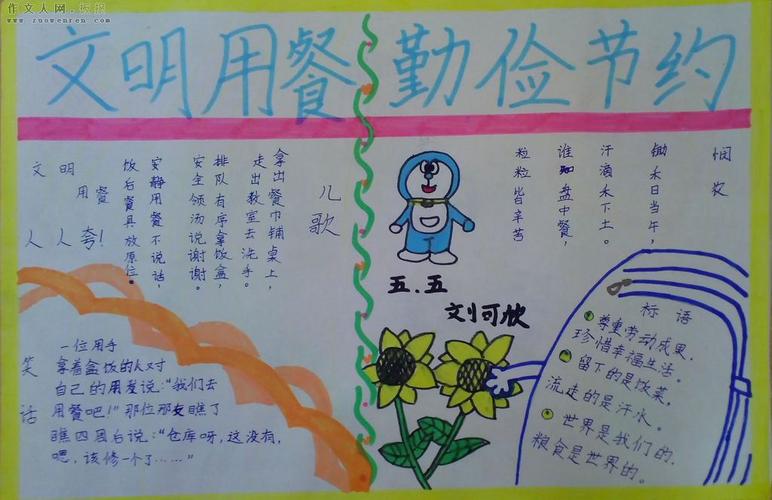 作文人网
www.zuowenren.com
文明用餐 勤俭节约
文明
用餐
人人夸!
儿歌
拿出餐巾铺桌上,
走出教室去洗手。
排队有序拿饭盒,
安全领汤说谢谢。
安静用餐不说话,
饭后餐具放原位。
笑话
一位用手
拿着盒饭的人对
自己的用发说:“我们去
用餐吧!”那位那女瞧了
瞧四周后说:“仓库呀,这没有,
嗯,该修一个了……”
悯农
锄禾日当午,
汗滴禾下土。
谁知盘中餐,
粒粒皆辛苦
五.五
刘可
标语
尊重劳动成果,
珍惜幸福生活。
留下的是饭菜,
流走的是汗水。
世界是我们的,
粮食是世界的。